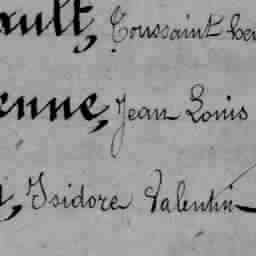 ault, Toussaint
enne, Jean Louis
, Isidore Valentin